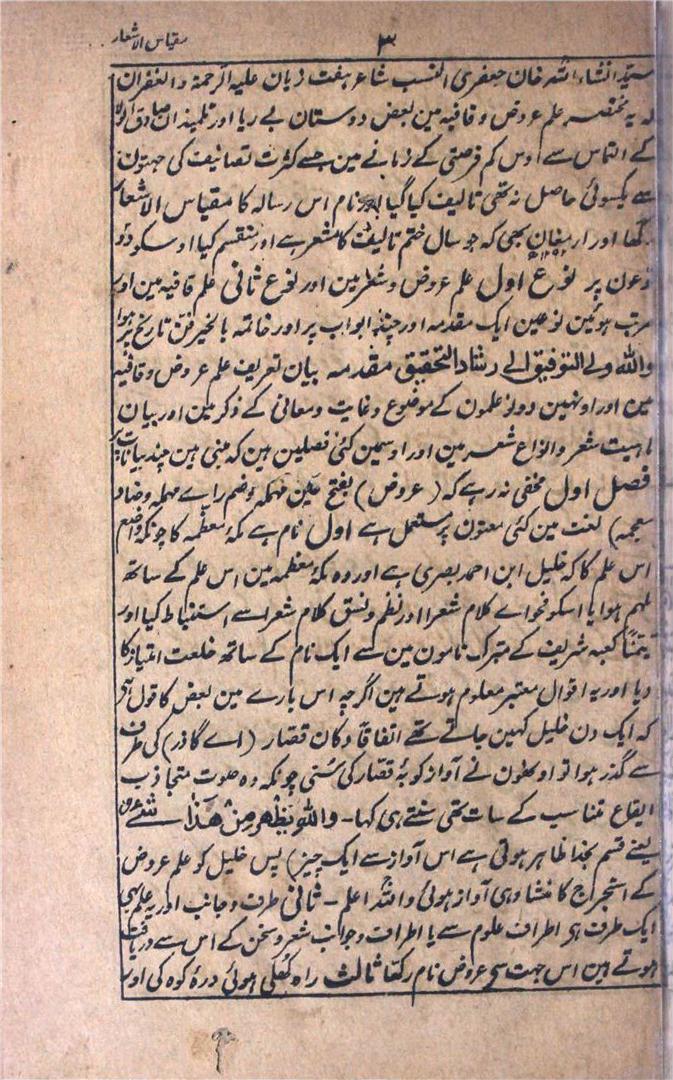 مقیاس الاشعار
۳
سید انشاء اللہ خان جعفری النسب شاعر ہفت زبان علیہ الرحمۃ والغفران
کہ یہ مختصر علم عروض و قافیہ مین بعض دوستان بے ریا اور تلمیذان صادق الولا
کے التماس سے اوس کم فرصتی کے زمانے مین جسے کثرت تصانیف کی جہتون
سے یکسوئی حاصل نہ تھی تالیف کیا گیا اور نام اس رسالہ کا مقیاس الاشعار
رکھا اور ارمغان بھی کہ جو سال ختم تالیف کا مشعر ہے اور منقسم کیا اوسکو دو
نوعون پر نوع اول علم عروض و شعر مین اور نوع ثانی علم قافیہ مین اور
مرتب ہوئین نوعین ایک مقدمہ اور چند ابواب پر اور خاتمہ بالخیر فن تاریخ پر ہوا
واللہ ولے التوفیق الے رشاد التحقیق مقدمہ بیان تعریف علم عروض و قافیہ
مین اور اونہین دونو علمون کے موضوع و غایت و معانی کے ذکر مین اور بیان
ماہیت شعر و انواع شعر مین اور اوسمین کئی فصلین ہین کہ مبنی ہین چند بیانات پر
فصل اول مخفی نہ رہے کہ (عروض) بفتح عین مہملہ و ضم راے مہملہ و ضاد
معجمہ) لغت مین کئی معنون پر مستعمل ہے اول نام ہے مکۂ معظمہ کا چونکہ واضع
اس علم کا کہ خلیل ابن احمد بصری ہے اور وہ مکۂ معظمہ مین اس علم کے ساتھ
ملہم ہوا یا اسکو فحواے کلام شعرا اور نظم و نسق کلام شعرا سے استنباط کیا اور
تیمنًا کعبہ شریف کے متبرک نامون مین سے ایک نام کے ساتھ خلعت امتیاز کا
دیا اور یہ اقوال معتبر معلوم ہوتے ہین اگرچہ اس بارے مین بعض کا قول ہے
کہ ایک دن خلیل کہین جاتے تھے اتفاقًا دکان قصار (اے گاذر) کی طرف
سے گذر ہوا تو اونھون نے آواز کوبۂ قصار کی سُنی چونکہ وہ صوت متجاذب
ایقاع تناسب کے سات تھی سنتے ہی کہا - واللہ یظھر من ھذا شئے
یعنے قسم بخدا ظاہر ہوتی ہے اس آواز سے ایک چیز) پس خلیل کو علم عروض
کے استخراج کا منشا وہی آواز ہوئی واللہ اعلم - ثانی طرف و جانب اور یہ علم بھی
ایک طرف ہی اطراف علوم سے یا اطراف و جوانب شعر و سخن کے اس سے دریافت
ہوتے ہین اس جہت سے عروض نام رکھا ثالث راہ کھلی ہوئی درۂ کوہ کی اور